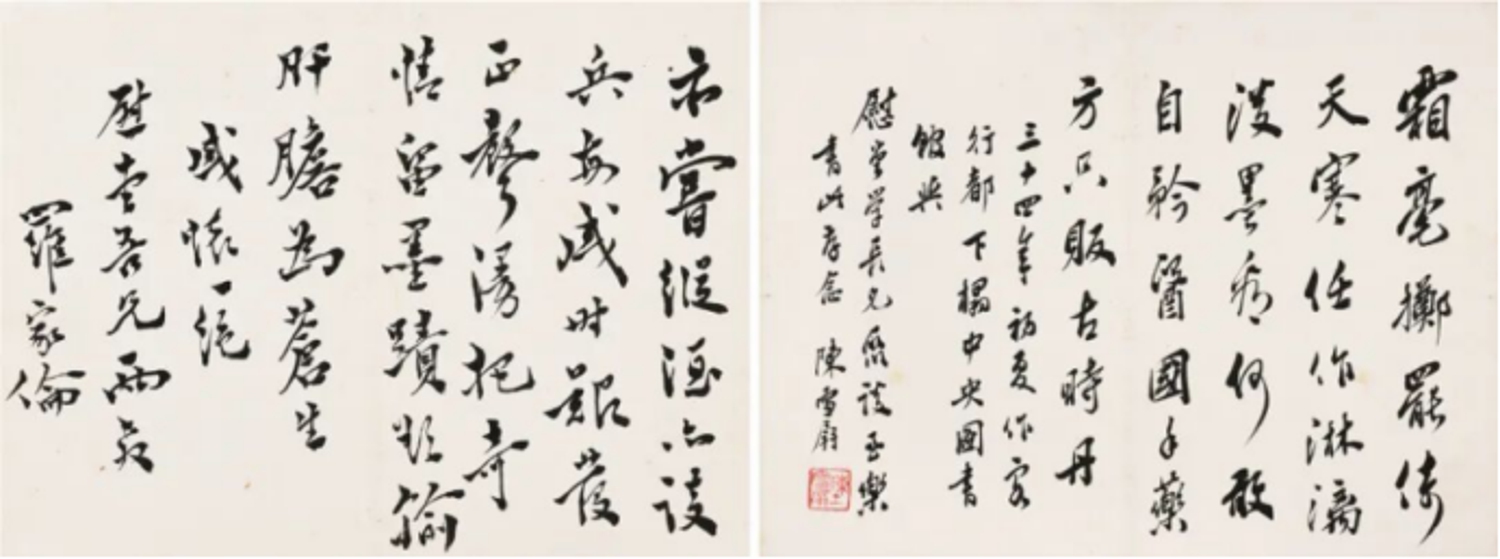 霜毫擲罷倚
天寒任作淋漓
淡墨看何敢
自矜醫國手藥
方只販古時丹
三十四年初夏作客
行都下榻中央圖書
館與
慰堂學長兄縱談至樂
書此存念 陳雪屏
亦嘗縱酒亦談
兵每感時艱發
正聲漫把奇
情留墨蹟欲輸
肝膽為蒼生
感懷一絕
慰堂吾兄兩正
羅家倫